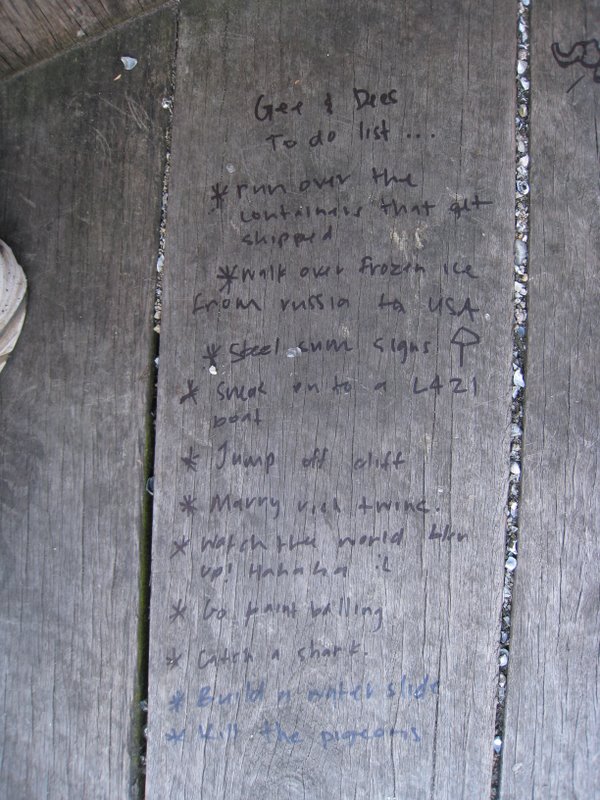 Gee & Dees
To do list...
* run over the
containers that get
shipped
* walk over frozen ice
from russia to USA
* Steel sum signs
* sneak on to a L421
boat
* Jump off cliff
* Marry rich twins.
* Watch the world blow
up! Hahaha :L
* Go paint balling
* Catch a shark.
* Build a water slide
* Kill the pigeons